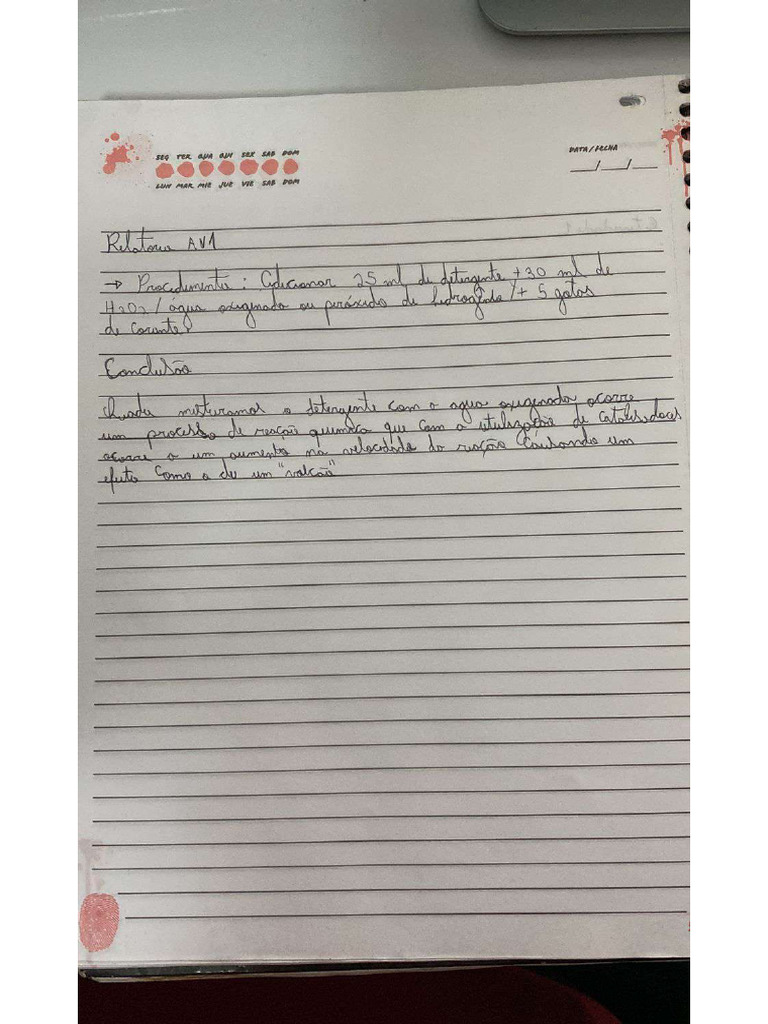 SEG TER QUA QUI SEX SAB DOM
LUN MAR MIE JUE VIE SAB DOM
DATA/FECHA
__/__/__
Relatorio AV1
→ Procedimento: Adicionar 25 ml de detergente + 30 ml de
H2O2 / água oxigenada ou peróxido de hidrogênio / + 5 gotas
de corante.
Conclusão
Quando misturamos o detergente com a agua oxigenada ocorre
um processo de reação quimica que com a utilização de catalisadores
ocorre o um aumento na velocidade da reação causando um
efeito como o de um "vulcão"